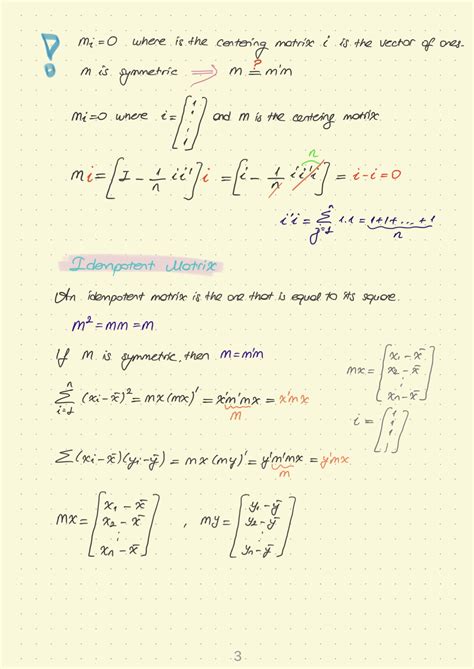 ! mi=0 where is the centering matrix i is the vector of ones.
m is symmetric ⟹ m ≟ m'm
mi=0 where i=[1 1 ⋮ 1] and m is the centering matrix.
mi=[I − 1/n ii']i = [i − 1/n ii'i] = i−i=0
n
i'i = Σ_{j=1}^{n} 1.1 = 1+1+...+1
n
Idempotent Matrix
An idempotent matrix is the one that is equal to its square.
m²=mm=m
If m is symmetric, then m=m'm
mx=[x₁−x̄ x₂−x̄ ⋮ xn−x̄]
Σ_{i=1}^{n} (xi−x̄)² = mx(mx)' = x'm'mx = x'mx
m
i=[1 1 ⋮ 1]
Σ(xi−x̄)(yi−ȳ) = mx(my)' = y'm'mx = y'mx
m
mx=[x₁−x̄ x₂−x̄ ⋮ xn−x̄] , my=[y₁−ȳ y₂−ȳ ⋮ yn−ȳ]
3